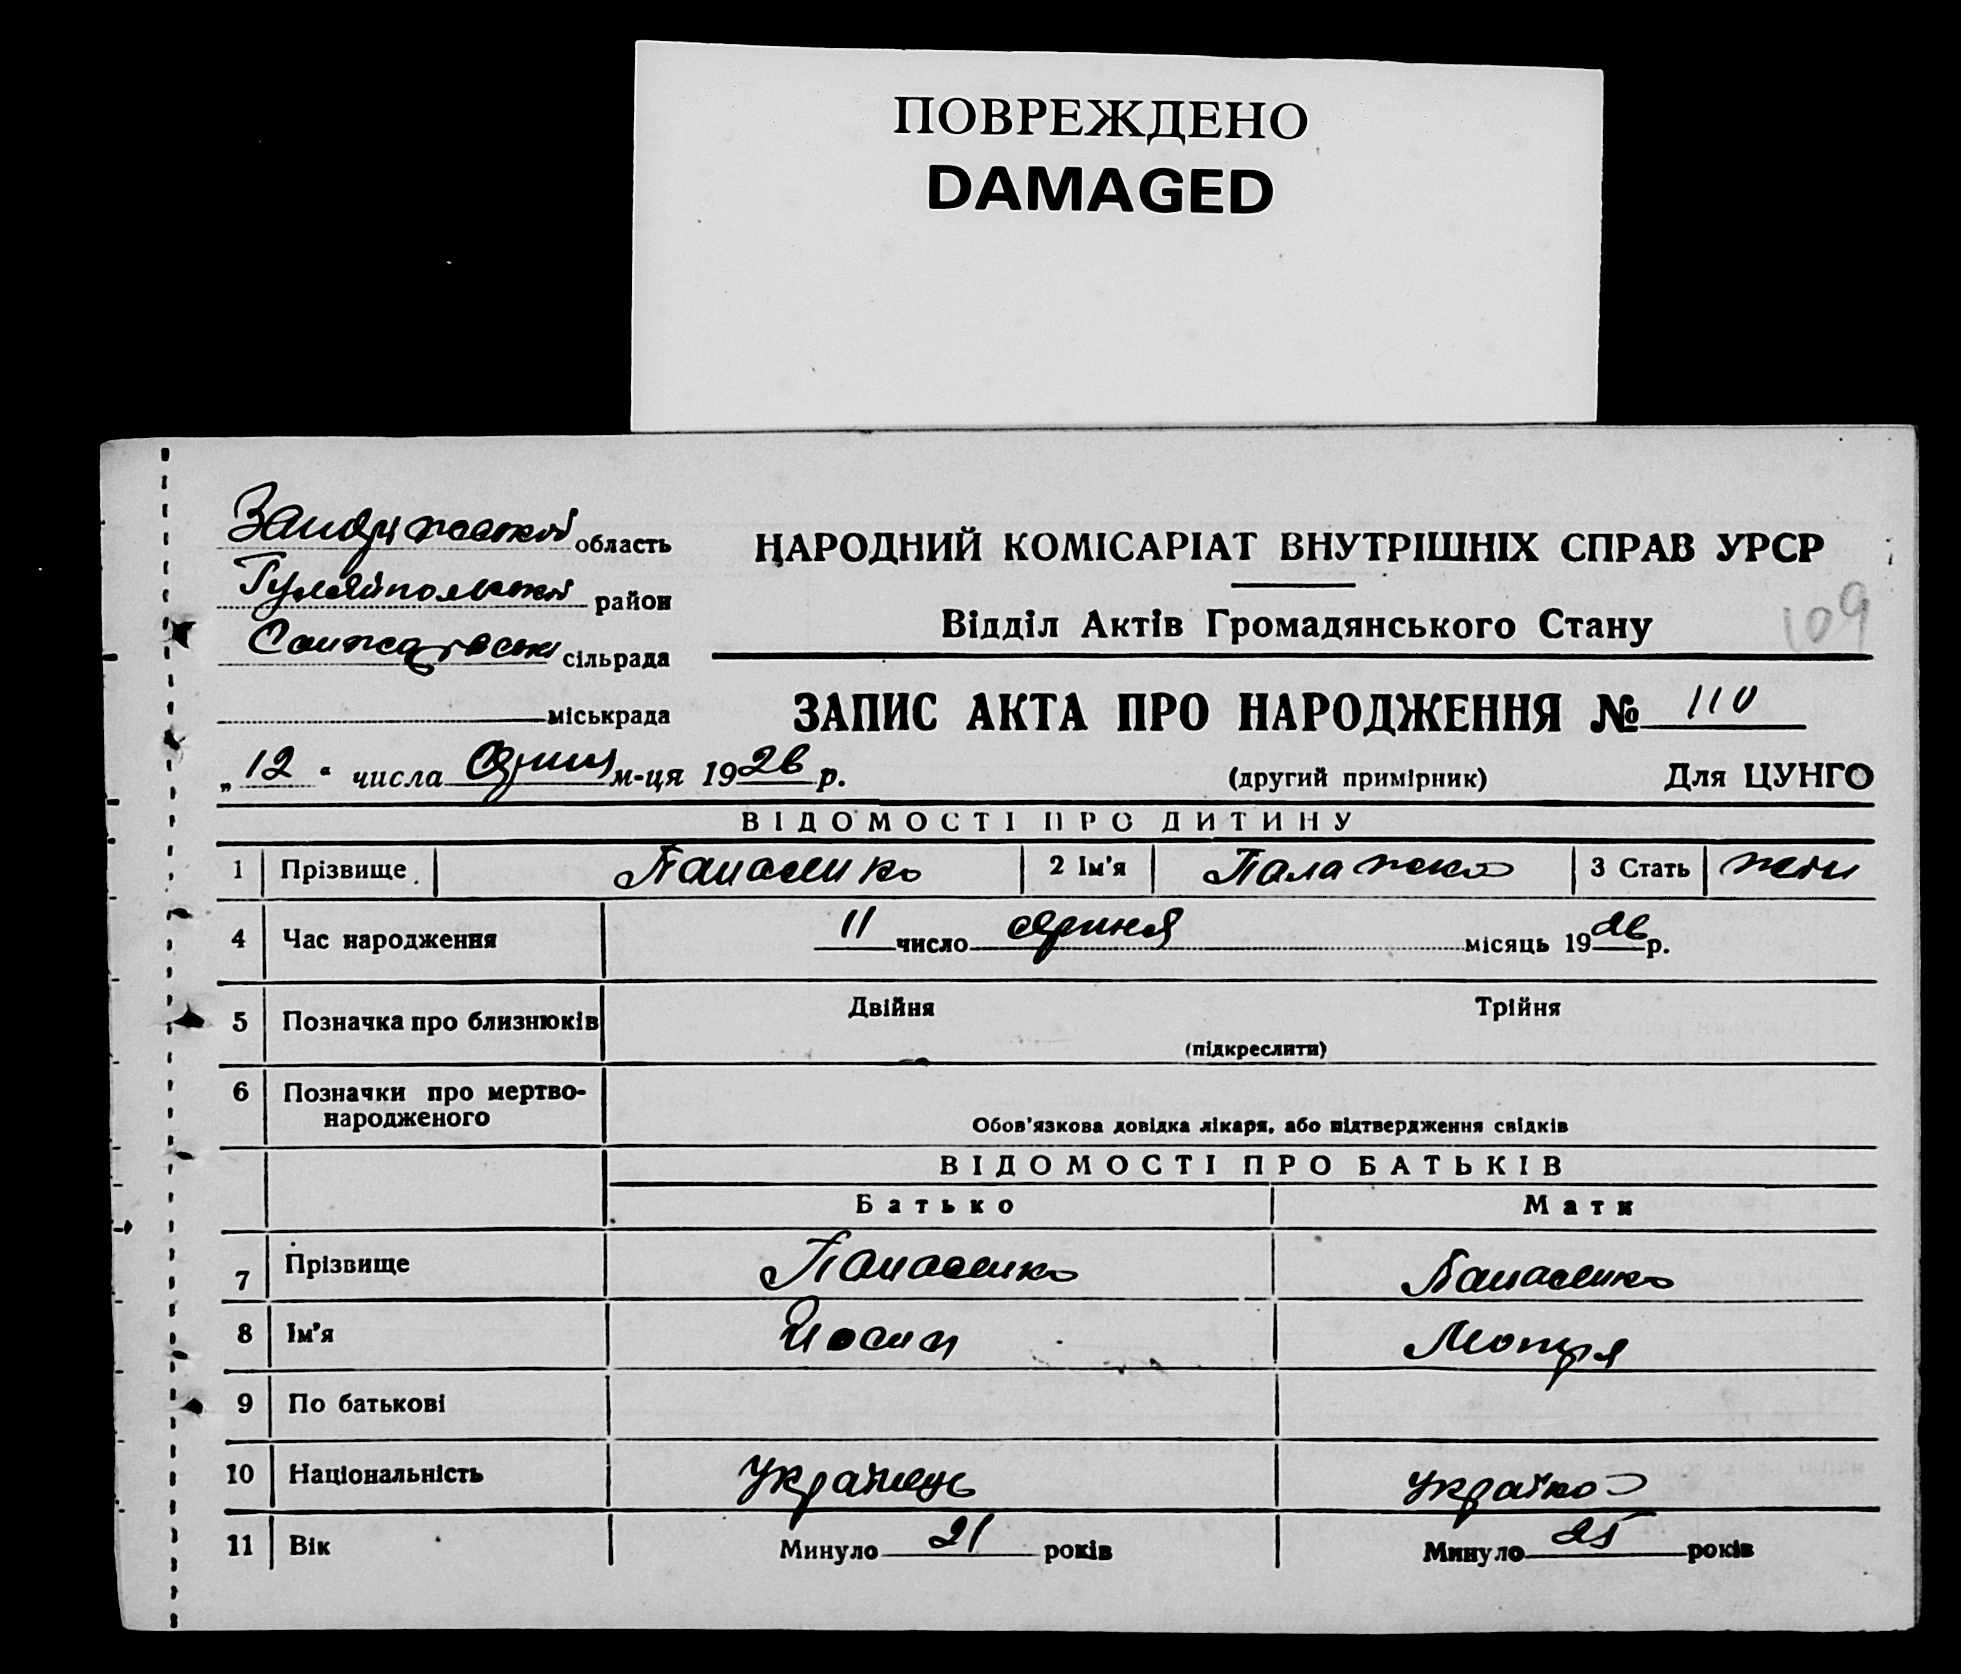 ПОВРЕЖДЕНО
DAMAGED
область
НАРОДНИЙ КОМІСАРІАТ ВНУТРІШНІХ СПРАВ УРСР
Гуляйпольской район
Відділ Актів Громадянського Стану 109
сільрада
міськрада
ЗАПИС АКТА ПРО НАРОДЖЕННЯ № 110
„ 12 “ числа м-ця 1926 р. (другий примірник) Для ЦУНГО
ВІДОМОСТІ ПРО ДИТИНУ
1 Прізвище Панасенко 2 Ім'я Палажка 3 Стать жен
4 Час народження 11 число місяць 1926 р.
5 Позначка про близнюків Двійня Трійня
(підкреслити)
6 Позначки про мертво-
народженого
Обов'язкова довідка лікаря, або підтвердження свідків
ВІДОМОСТІ ПРО БАТЬКІВ
Батько Мати
7 Прізвище Панасенко Панасенко
8 Ім'я Йосип Мотря
9 По батькові
10 Національність Українець Українка
11 Вік Минуло 21 років Минуло 25 років